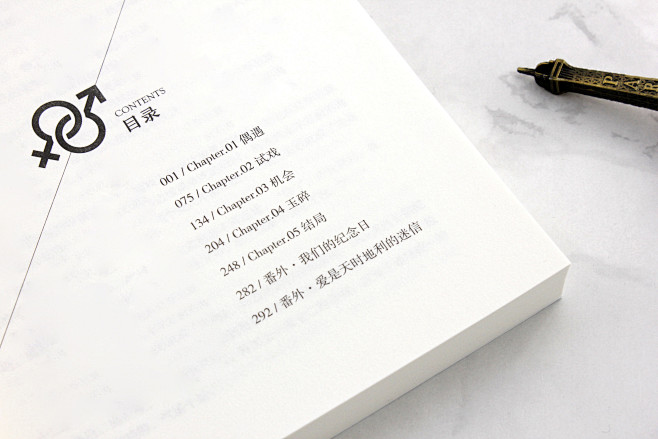 CONTENTS
目录
001 / Chapter.01 偶遇
075 / Chapter.02 试戏
134 / Chapter.03 机会
204 / Chapter.04 玉碎
248 / Chapter.05 结局
282 / 番外·我们的纪念日
292 / 番外·爱是天时地利的迷信
PAR